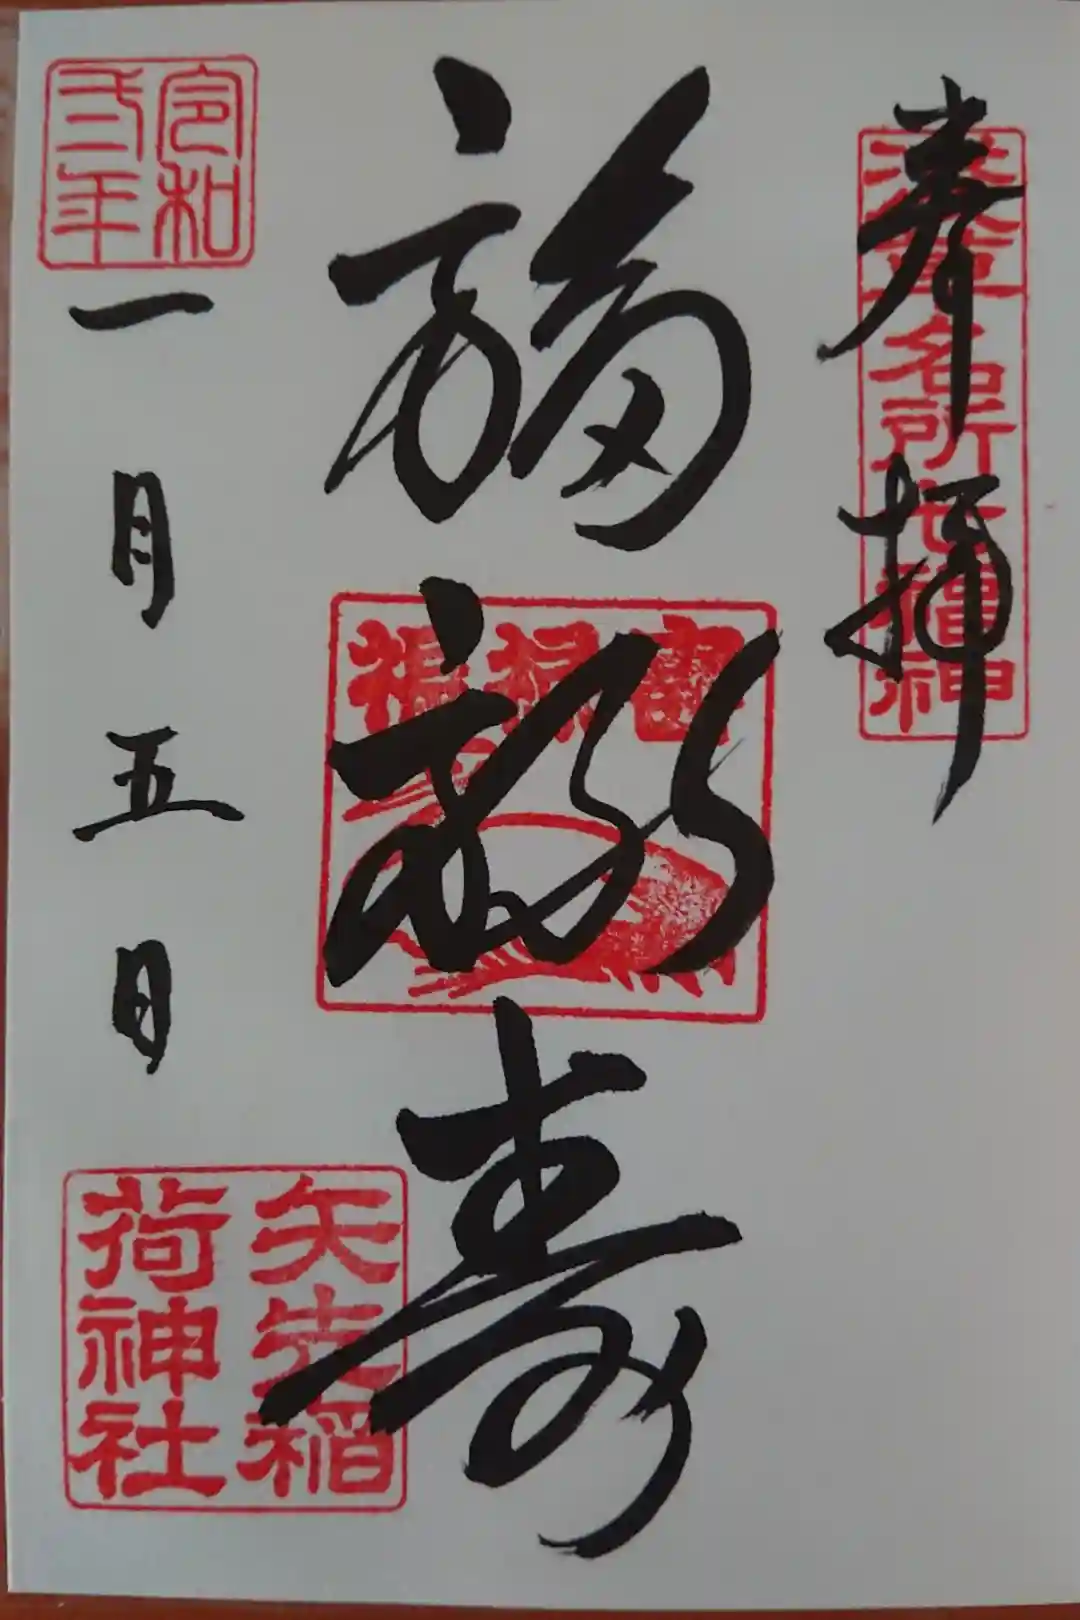 奉拝
浅草名所七福神
福禄寿
福禄寿
令和
弐年
一月五日
矢先稲
荷神社